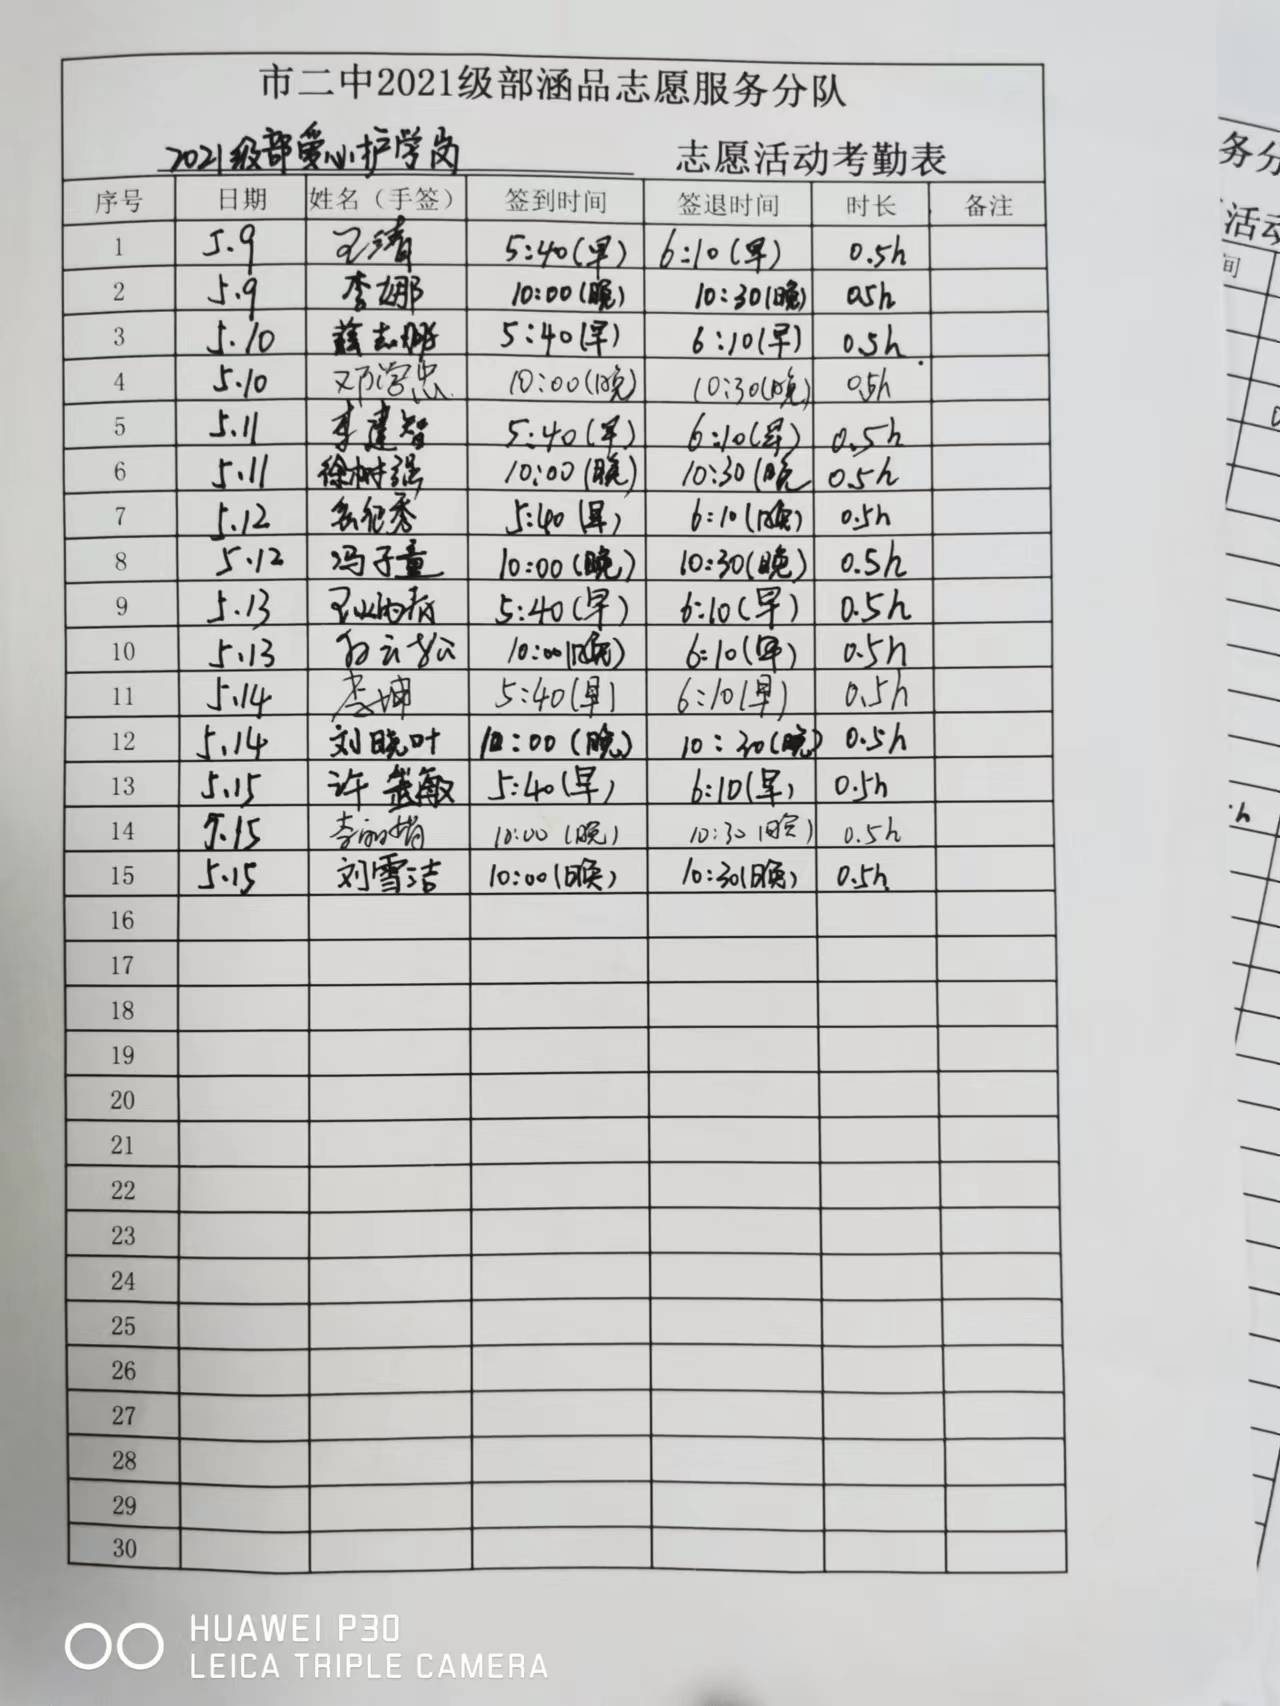 市二中2021级部涵品志愿服务分队
2021级部爱心护学岗 志愿活动考勤表
序号 日期 姓名（手签） 签到时间 签退时间 时长 备注
1 5.9 王清 5:40(早) 6:10(早) 0.5h
2 5.9 李娜 10:00(晚) 10:30(晚) 0.5h
3 5.10 5:40(早) 6:10(早) 0.5h
4 5.10 10:00(晚) 10:30(晚) 0.5h
5 5.11 李建智 5:40(早) 6:10(早) 0.5h
6 5.11 徐树强 10:00(晚) 10:30(晚 0.5h
7 5.12 5:40(早) 6:10(晚) 0.5h
8 5.12 冯子童 10:00(晚) 10:30(晚) 0.5h
9 5.13 5:40(早) 6:10(早) 0.5h
10 5.13 10:00(晚) 6:10(早) 0.5h
11 5.14 李坤 5:40(早) 6:10(早) 0.5h
12 5.14 刘晓叶 10:00(晚) 10:30(晚) 0.5h
13 5.15 5:40(早) 6:10(早) 0.5h
14 5.15 10:00(晚) 10:30(晚) 0.5h
15 5.15 刘雪洁 10:00(晚) 10:30(晚) 0.5h
16
17
18
19
20
21
22
23
24
25
26
27
28
29
30
务分
活动
间
HUAWEI P30
LEICA TRIPLE CAMERA